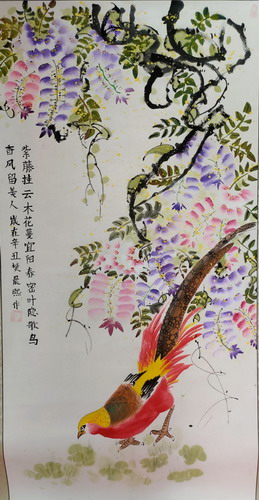 紫藤挂云木花蔓宜阳春密叶隐歌鸟
香风留美人 岁在辛丑